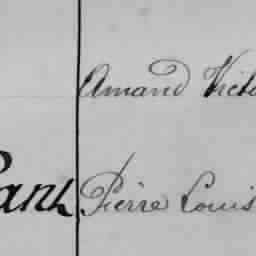 Amand Victo
Pierre Louis